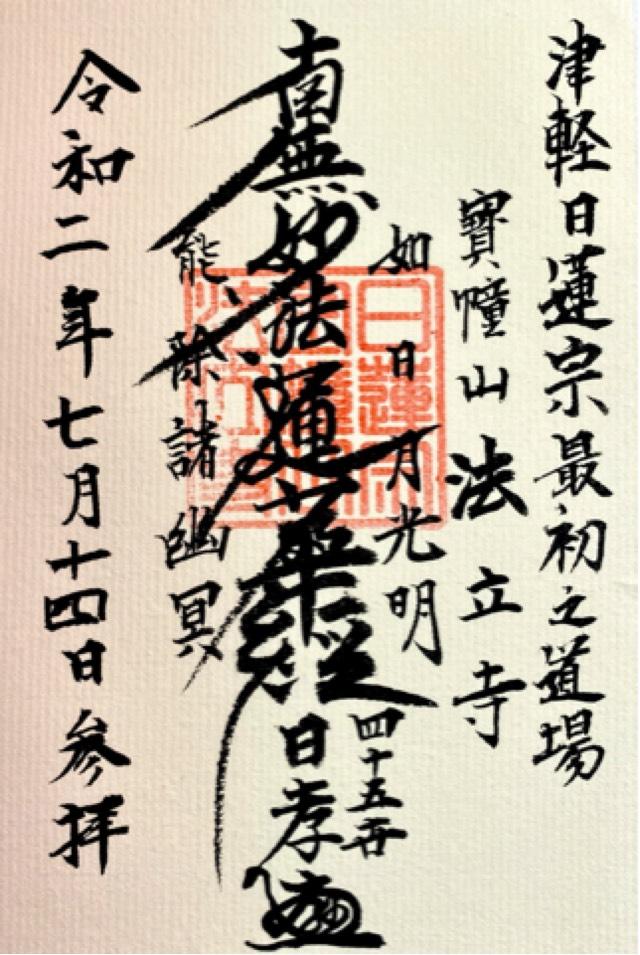 津軽日蓮宗最初之道場
寳幢山法立寺
如日月光明
南無妙法蓮華経
四十五世
日孝
能除諸幽冥
令和二年七月十四日参拝